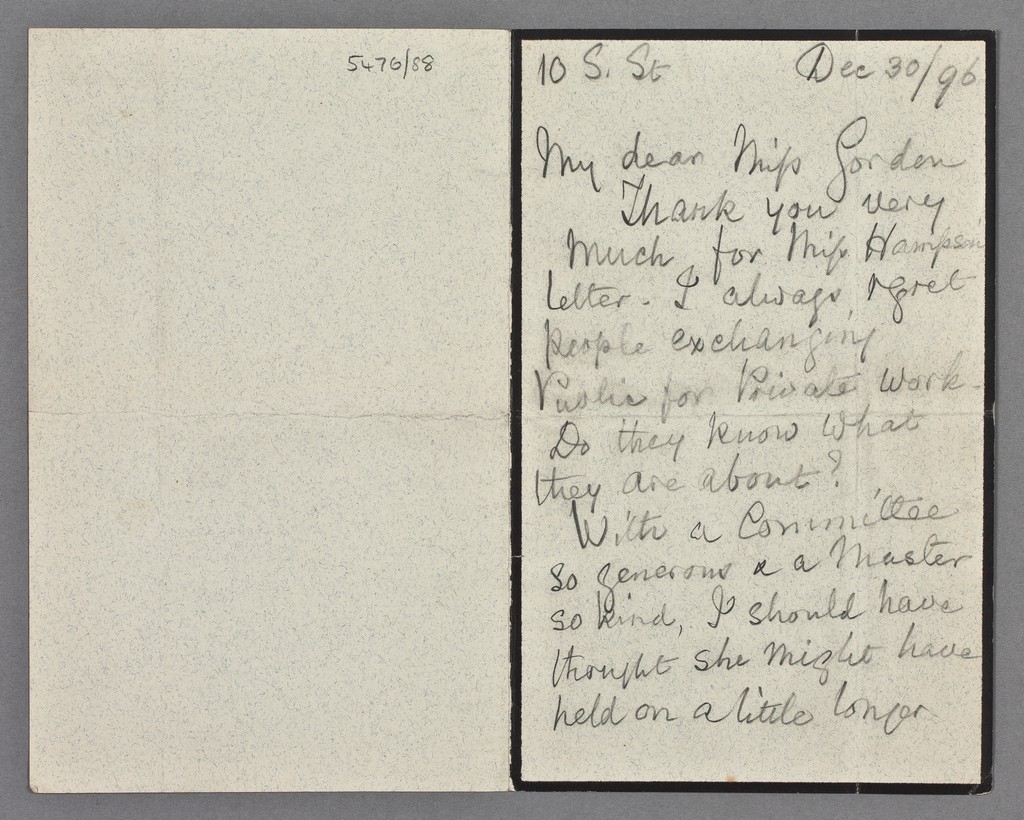 5476/88
10 S. St Dec 30/96
My dear Miss Gordon
Thank you very
much for Miss Hampson
letter. I always regret
people exchanging
Public for Private work.
Do they know what
they are about?
With a Committee
so generous & a Master
so kind, I should have
thought she might have
held on a little longer